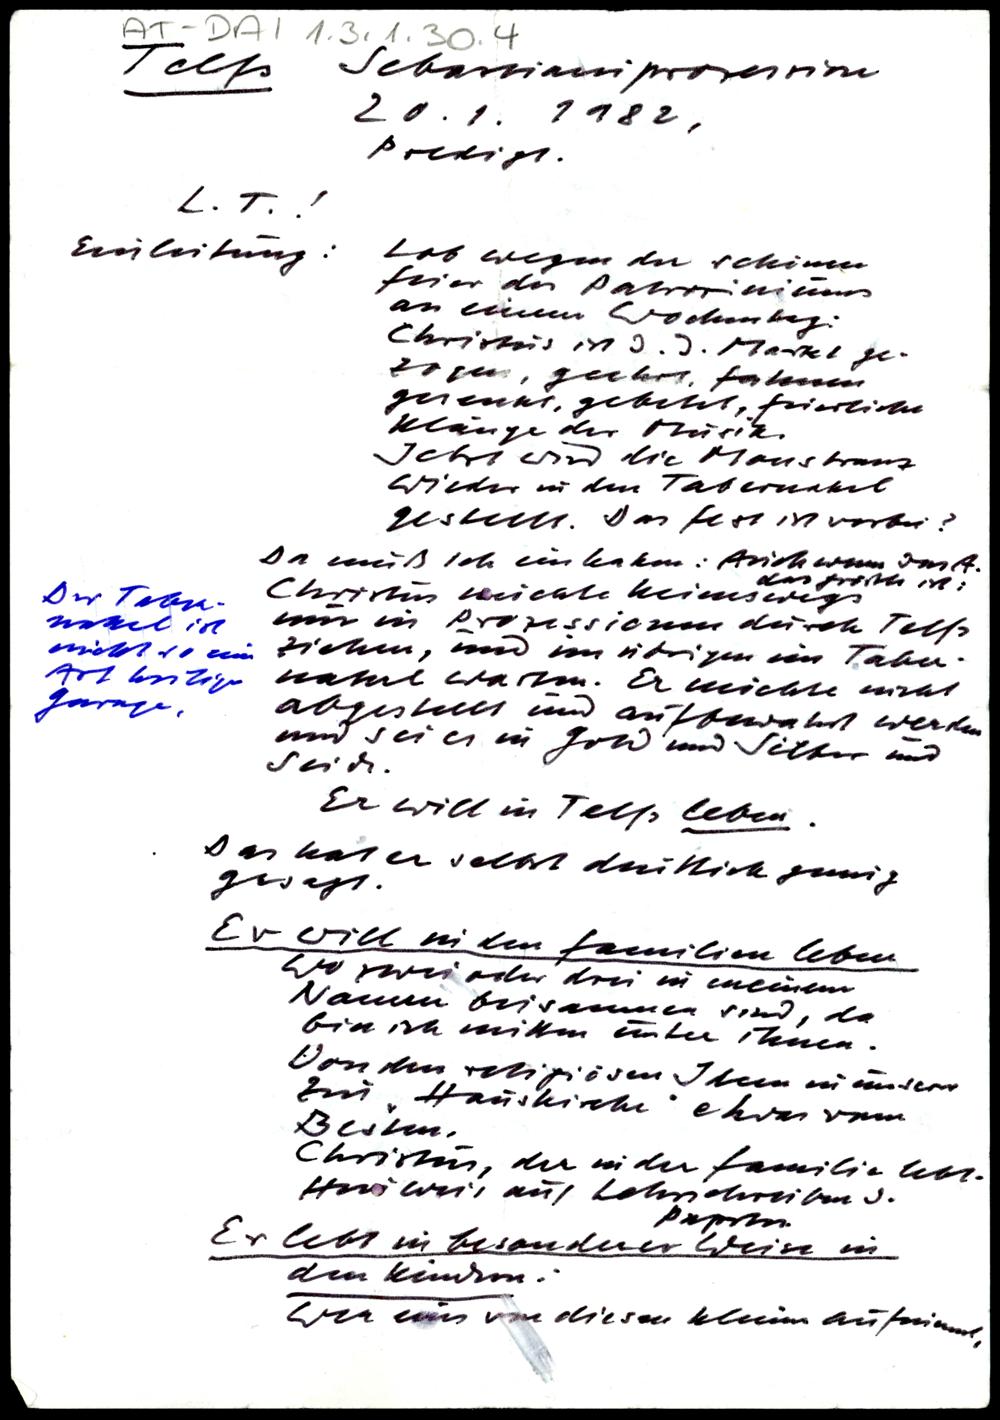 AT-DAI 1.3.1.30.4
Telfs Sebastianiprozession
20.1.1982,
Predigt.
L. T.!
Einleitung:
Lob wegen der schönen
Feier des Patroziniums
an einem Wochentag:
Christus ist d. d. Markt ge-
zogen, geehrt, Fahnen
gesenkt, gebetet, feierliche
Klänge der Musik.
Jetzt wird die Monstranz
wieder in den Tabernakel
gestellt. Das Fest ist vorbei?
Da muß ich einhaken: Auch wenn das A.
das größte ist:
Christus möchte keineswegs
nur in Prozessionen durch Telfs
ziehen, und im übrigen im Taber-
nakel warten. Er möchte nicht
abgestellt und aufbewahrt werden
und sei es in Gold und Silber und
Seide.
Der Taber-
nakel ist
nicht so eine
Art heilige
Garage.
Er will in Telfs leben.
Das hat er selbst deutlich genug
gesagt.
Er will in den Familien leben
Wo zwei oder drei in meinem
Namen beisammen sind, da
bin ich mitten unter ihnen.
Von den religiösen Ideen in unserer
Zeit "Hauskirche" etwas vom
Besten.
Christus, der in der Familie lebt.
Hinweis auf Lehrschreiben d.
Papstes
Er lebt in besonderer Weise in
den Kindern:
Wer eins von diesen Kleinen aufnimmt,